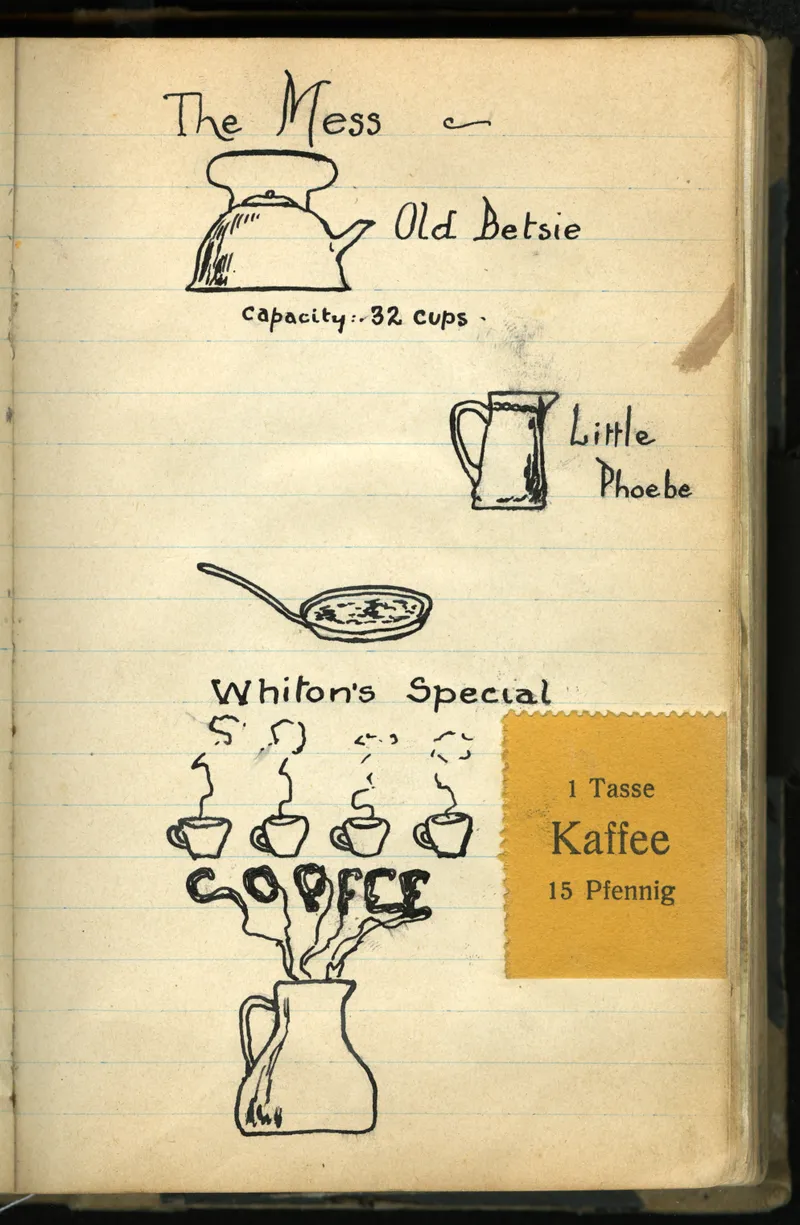 The Mess
Old Betsie
Capacity:- 32 cups.
Little
Phoebe
Whiton's Special
1 Tasse
Kaffee
15 Pfennig
COFFEE